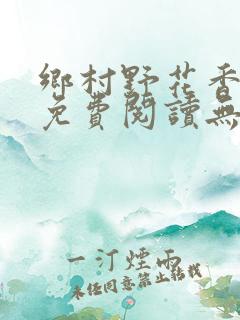 鄉村野花香
免費閱讀無
一汀煙雨
未經同意禁止轉載